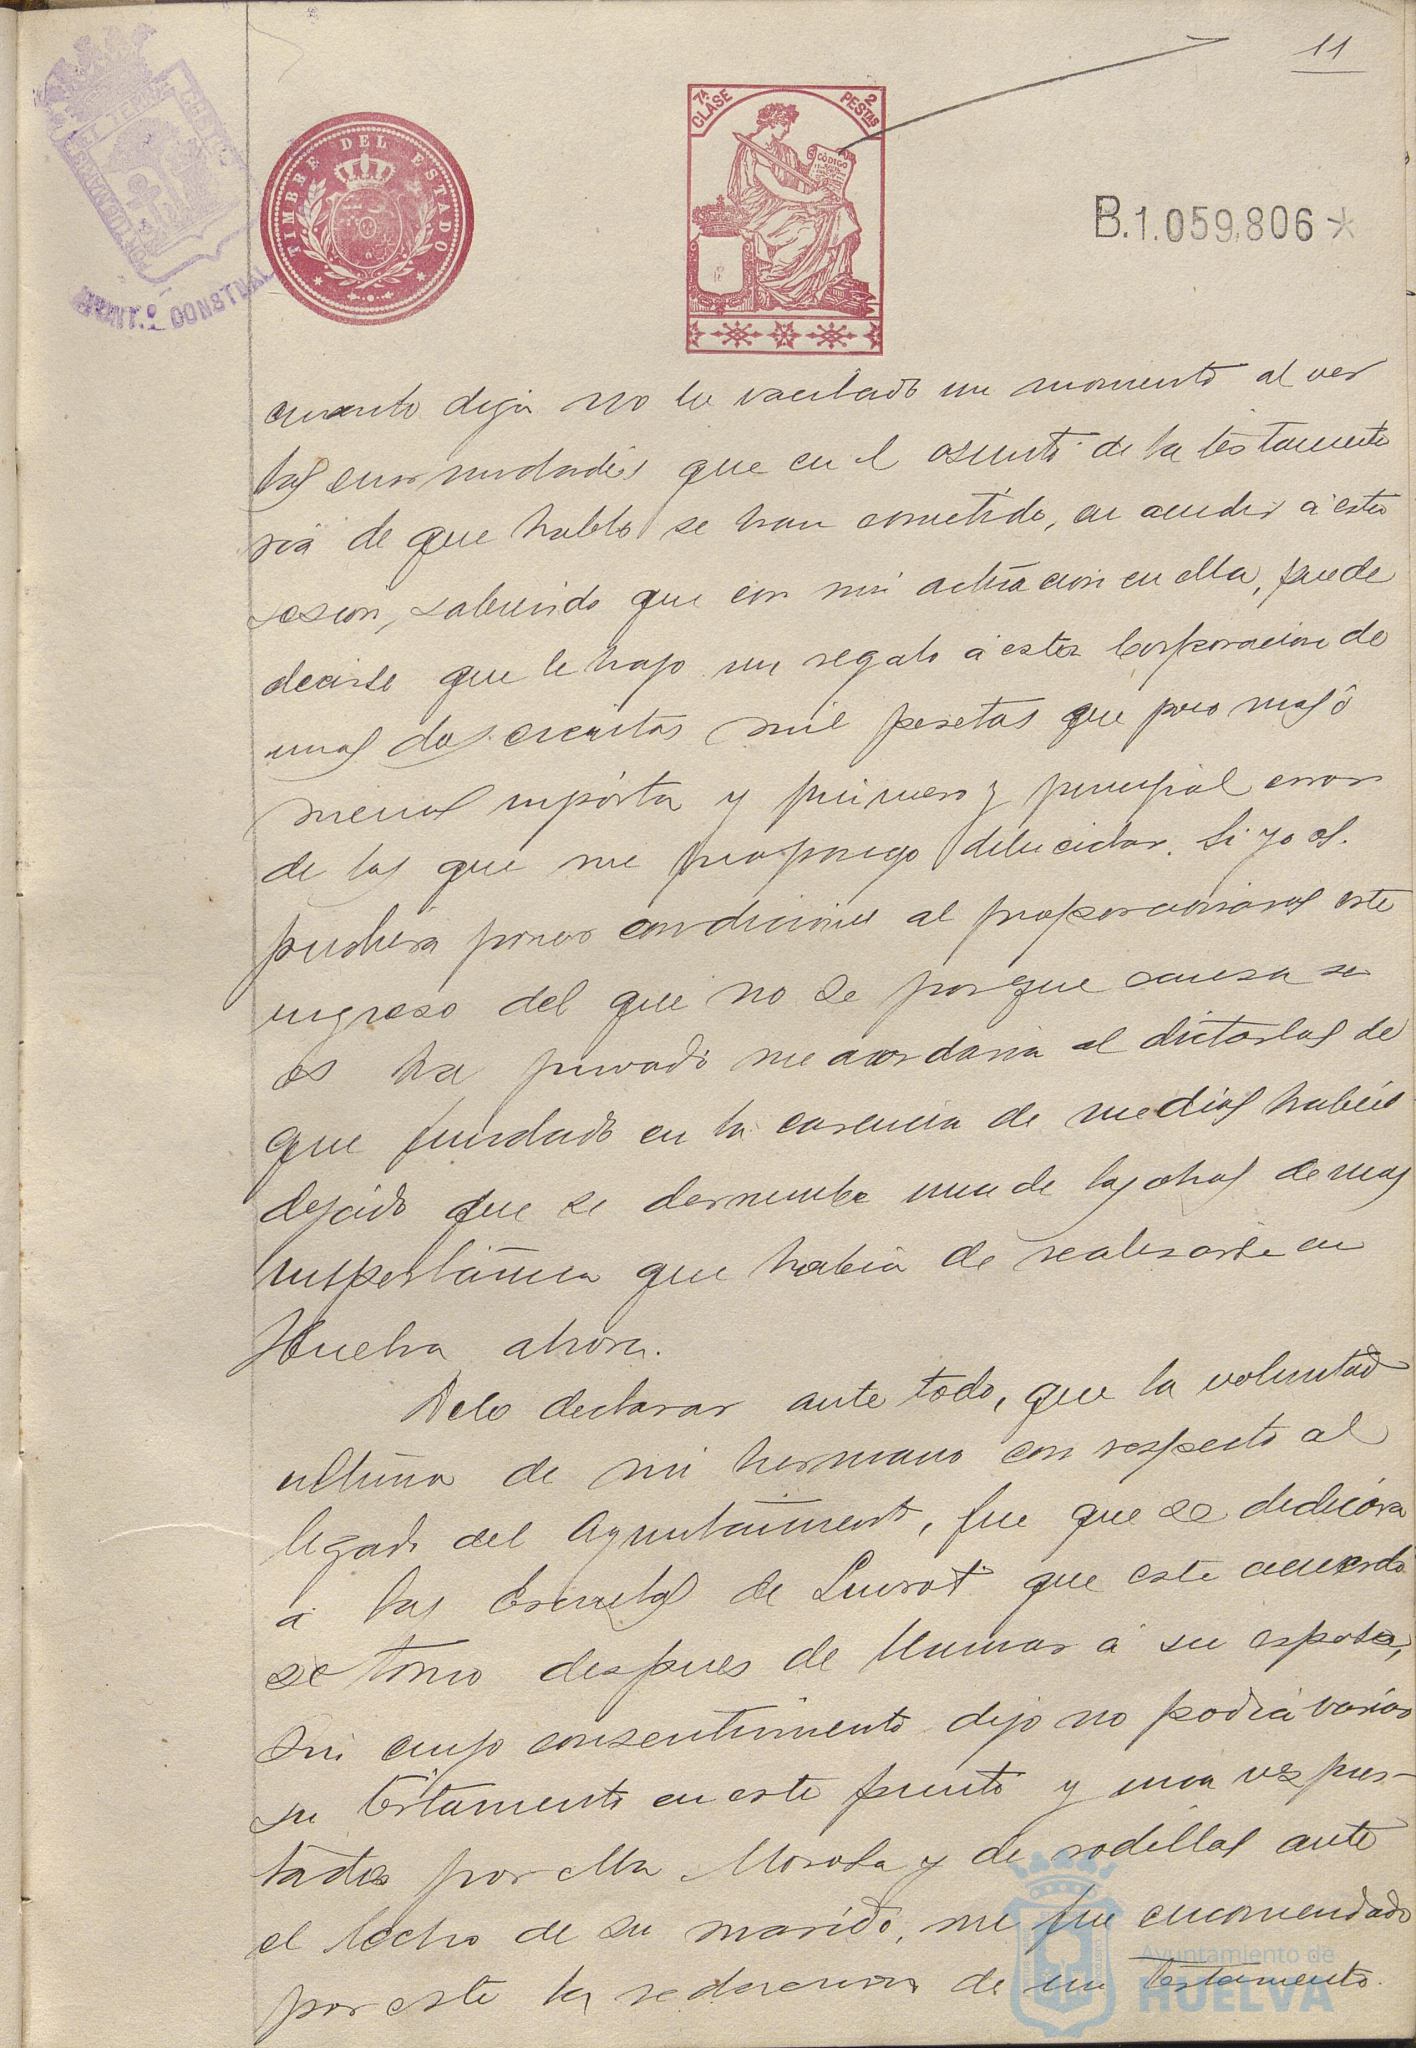 11
TIMBRE DEL ESTADO
7ª CLASE
2 PESTAS
CÓDIGO
B.1.059.806*
AYUNT.º CONSTNAL
cuanto dije no he vacilado un momento al ver
las enormidades que en el asunto de la testamenta
ria de que hablo se han cometido, en acudir á esta
sesion, sabiendo que con mi actuacion en ella, puede
decirse que le hago un regalo á esta Corporacion de
unas doscientas mil pesetas que poco mas ó
menos importa y primero y principal error
de los que me propongo dilucidar. Si yo os
pudiera poner condiciones al proporcionaros este
ingreso del que no se por que causa se
os ha privado me acordaria al dictarlas de
que fundado en la carencia de medios habeis
dejado que se derrumbe una de las obras de mas
importancia que habia de realizarse en
Huelva ahora.
Debo declarar ante todo, que la voluntad
ultima de mi hermano con respecto al
legado del Ayuntamiento, fue que se dedicara
á las Escuelas de Siurot que este acuerdo
se tomó despues de llamar á su esposa,
sin cuyo consentimiento dijo no podia variar
su testamento en este punto y una vez pres-
tados por ella llorosa y de rodillas ante
el lecho de su marido, me fue encomendado
por este la redaccion de un testamento.
Ayuntamiento de
HUELVA